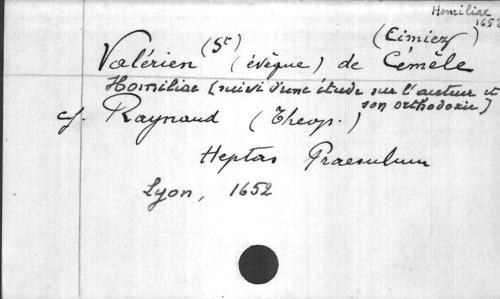 Homiliae
1652
(Cimiez)
Valérien (St) (évêque) de Cémèle
Homiliae (suivi d'une étude sur l'auteur et
son orthodoxie)
cf. Raynaud (Theop.)
Heptas Praesulum
Lyon, 1652